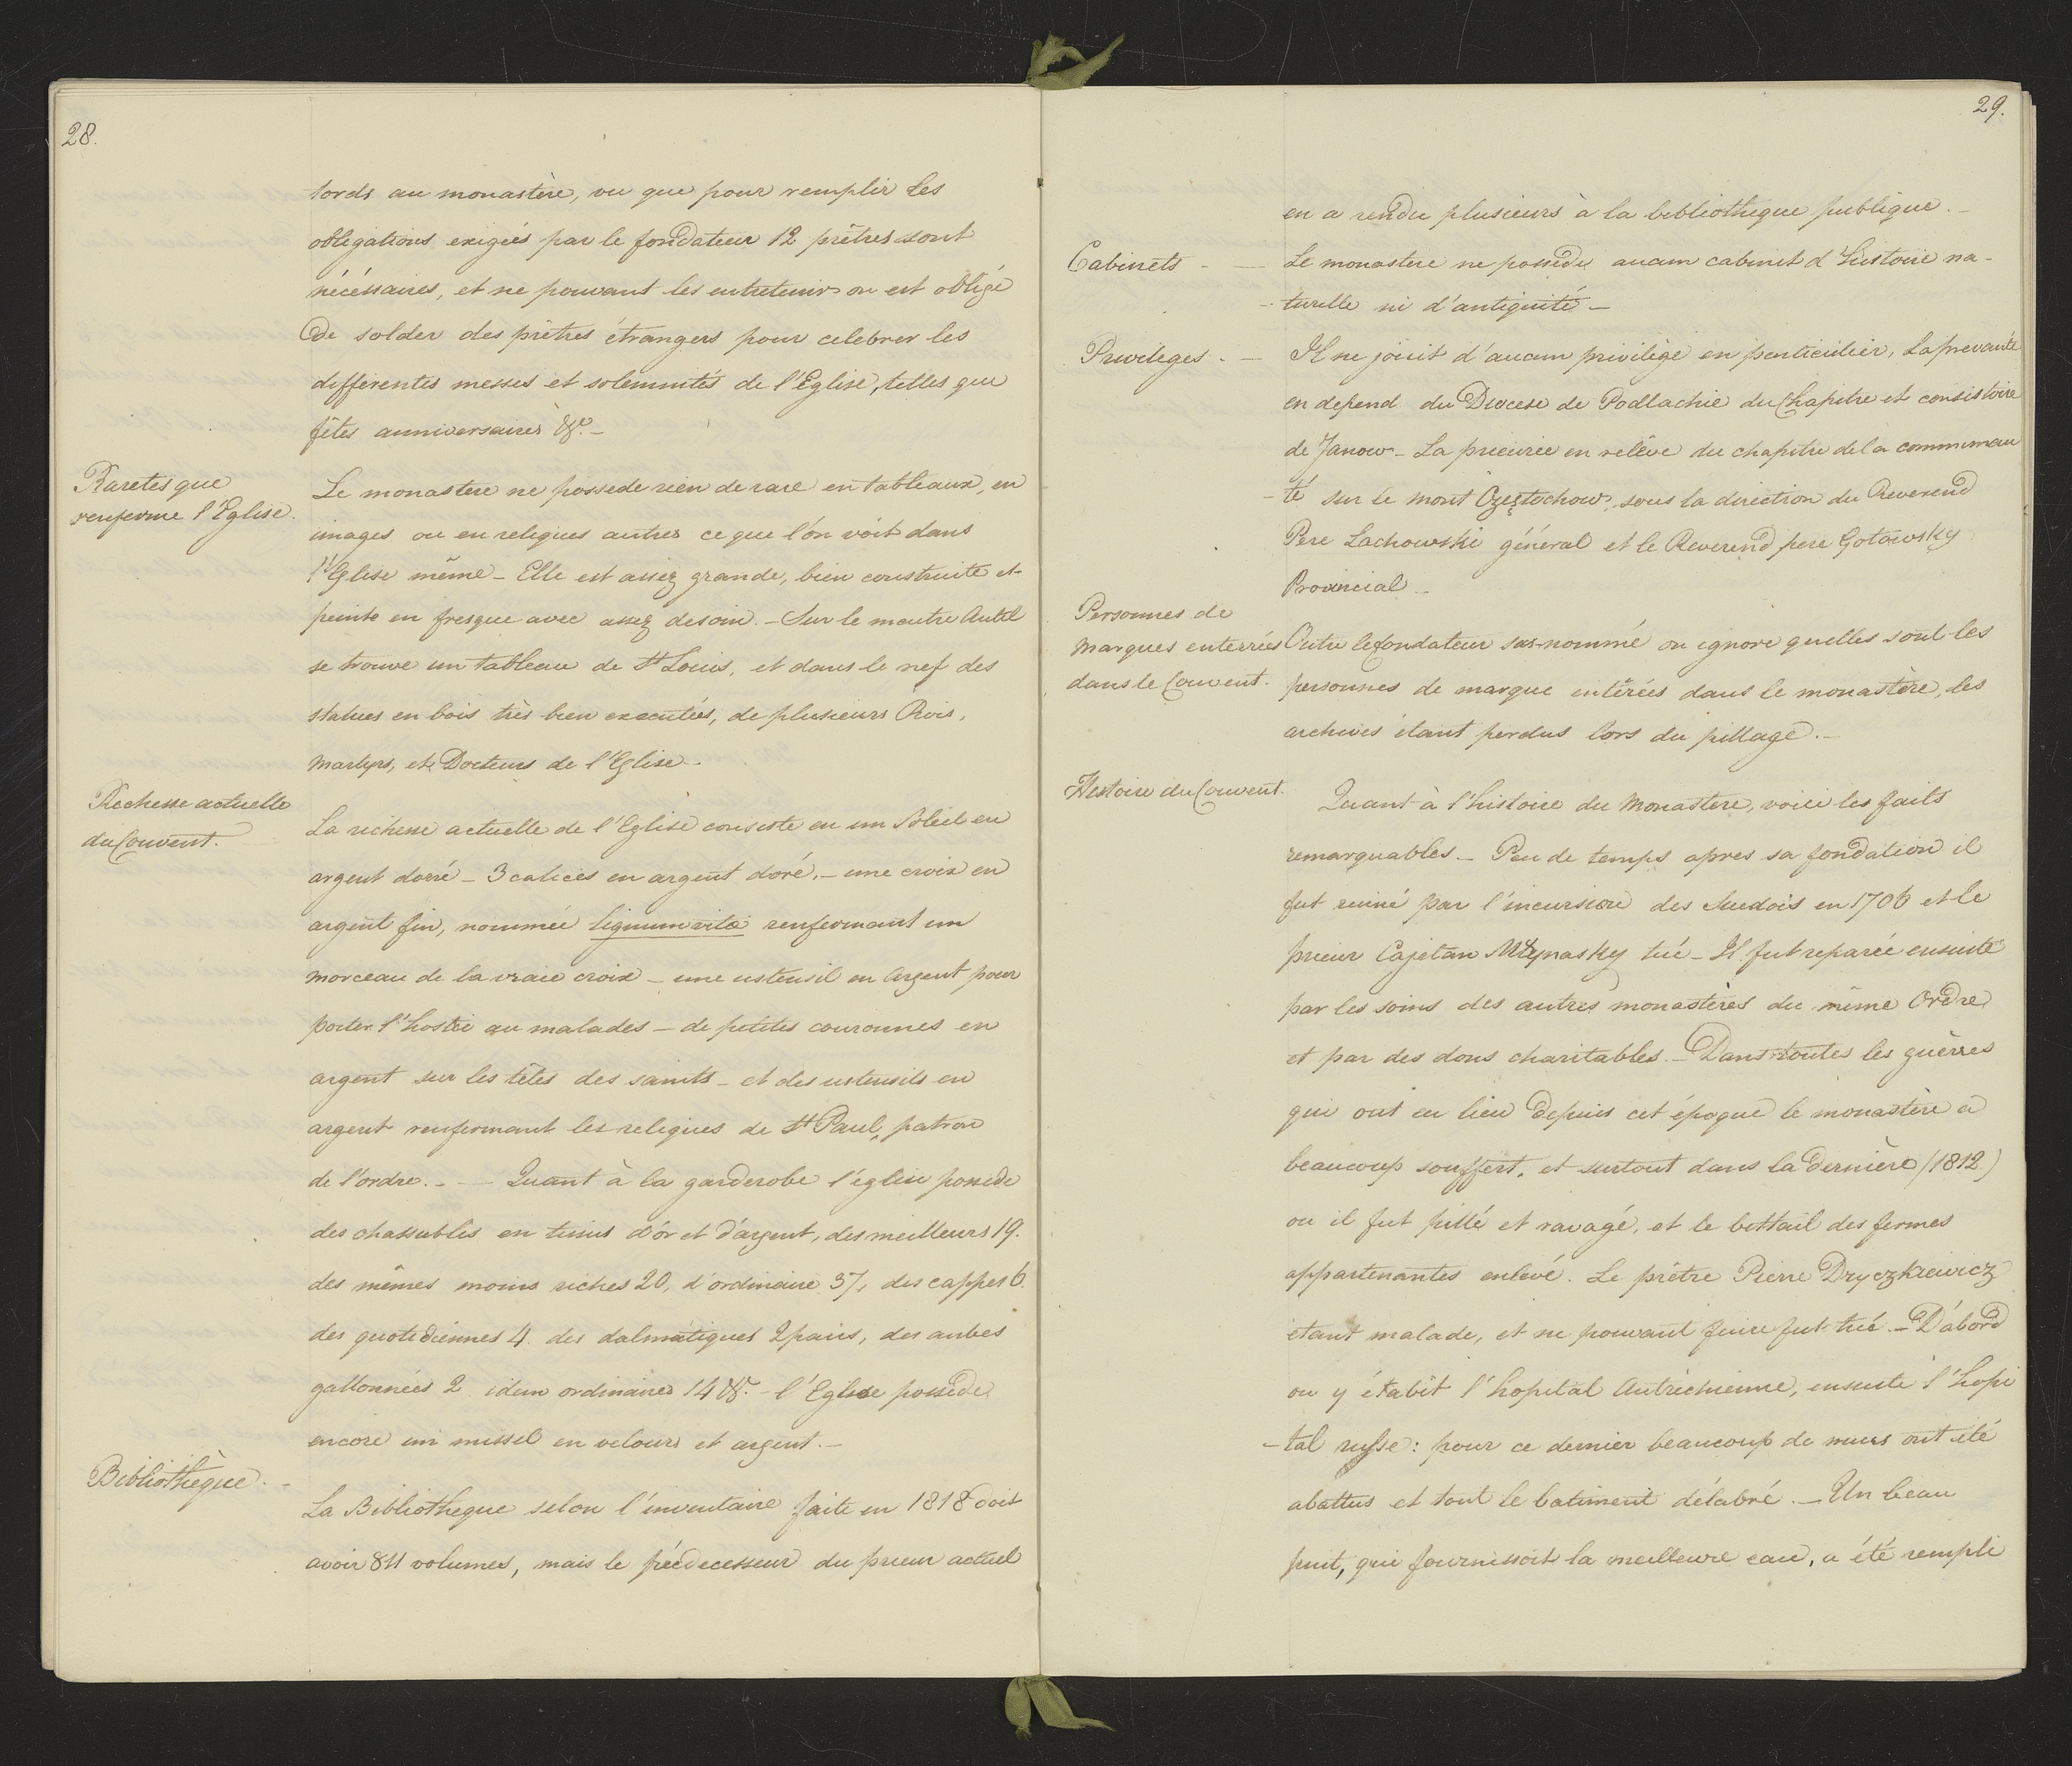 28.
tords au monastère, vu que pour remplir les
obligations exigées par le fondateur 12 prêtres sont
nécéssaires, et ne pouvant les entretenir on est obligé
de solder des prêtres étrangers pour celebrer les
differentes messes et solemnités de l'Eglise, telles que
fêtes anniversaires &c.–
Raretes que
renferme l'Eglise.
Le monastere ne possede rien de rare en tableaux, en
images ou en reliques autres ce que l'on voit dans
l'Eglise même – Elle est assez grande, bien construite et
peinte en fresque avec assez de soin. – Sur le maitre Autel
se trouve un tableau de St Louis, et dans le nef des
statues en bois très bien executées, de plusieurs Rois,
Martyrs, et Docteurs de l'Eglise.
Richesse actuelle
du Couvent.
La richesse actuelle de l'Eglise consiste en un Soleil en
argent dorré – 3 calices en argent doré, – une croix en
argent fin, nommée lignum vitæ renfermant un
morceau de la vraie croix – une ustensil en Argent pour
porter l'hostie au malades – de petites couronnes en
argent sur les têtes des saints – et des ustensils en
argent renfermant les reliques de St Paul, patron
de l'ordre. – — Quant à la garderobe l'église possede
des chassubles en tissus d'or et d'argent, des meilleurs 19.
des mêmes moins riches 20, d'ordinaire 37, des cappes 6.
des quotediennes 4. des dalmatiques 2 pairs, des aubes
gallonnées 2 idem ordinaires 14 &c. – l'Eglise possede
encore un missel en velours et argent. –
Bibliothèque. –
La Bibliotheque selon l'inventaire faite en 1818 doit
avoir 811 volumes, mais le prédecesseur du prieur actuel
29.
en a rendu plusieurs à la bibliotheque publique. –
Cabinets – — Le monastere ne possède aucun cabinet d'histoire na-
-turelle ni d'antiquité –
Privileges. — Il ne jouit d'aucun privilège en particulier, La prevauté
en depend du Diocese de Podlachie du Chapitre et consistoire
de Janow – La prieurée en relêve du chapitre de la communeau
-té sur le mont Częstochow, sous la direction du Reverend
Pere Lachowski général et le Reverend pere Gotowsky
Provincial –
Personnes de
marques enterrées
dans le Couvent.
Outre le fondateur sus-nommé on ignore quelles sont les
personnes de marque entêrées dans le monastère, les
archives étant perdus lors du pillage. –
Histoire du Couvent.
Quant à l'histoire du Monastere, voici les faits
remarquables. – Peu de temps apres sa fondation il
fut ruiné par l'incursion des Suedois en 1706 et le
prieur Cajetan tué – Il fut reparée ensuite
par les soins des autres monastères du même Ordre
et par des dons charitables. – Dans toutes les guèrres
qui ont eu lieu depuis cet époque le monastère a
beaucoup souffert, et surtout dans la dernière (1812)
ou il fut pillé et ravagé, et le bettail des fermes
appartenantes enlevé. Le prêtre Pierre Dryczkiewicz
etant malade, et ne pouvant fuire fut tué. – D'abord
on y établit l'hopital Autrichienne, ensuite l'hopi
-tal russe: pour ce dernier beaucoup de murs ont été
abattus et tout le batiment délabré. – Un beau
puit, qui fournissoit la meilleure eau, a été rempli